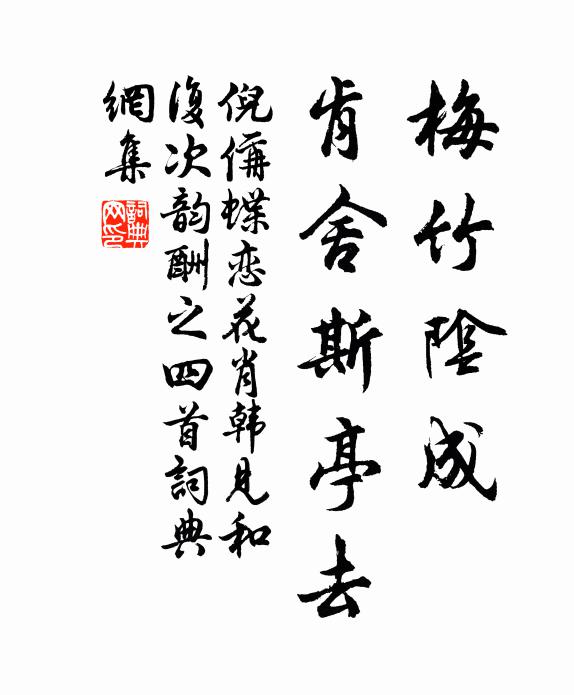 梅竹陰成
肯舍斯亭去
倪偁蝶恋花肖韩見和
復次韵酬之四首詞典
網集
詞典网印